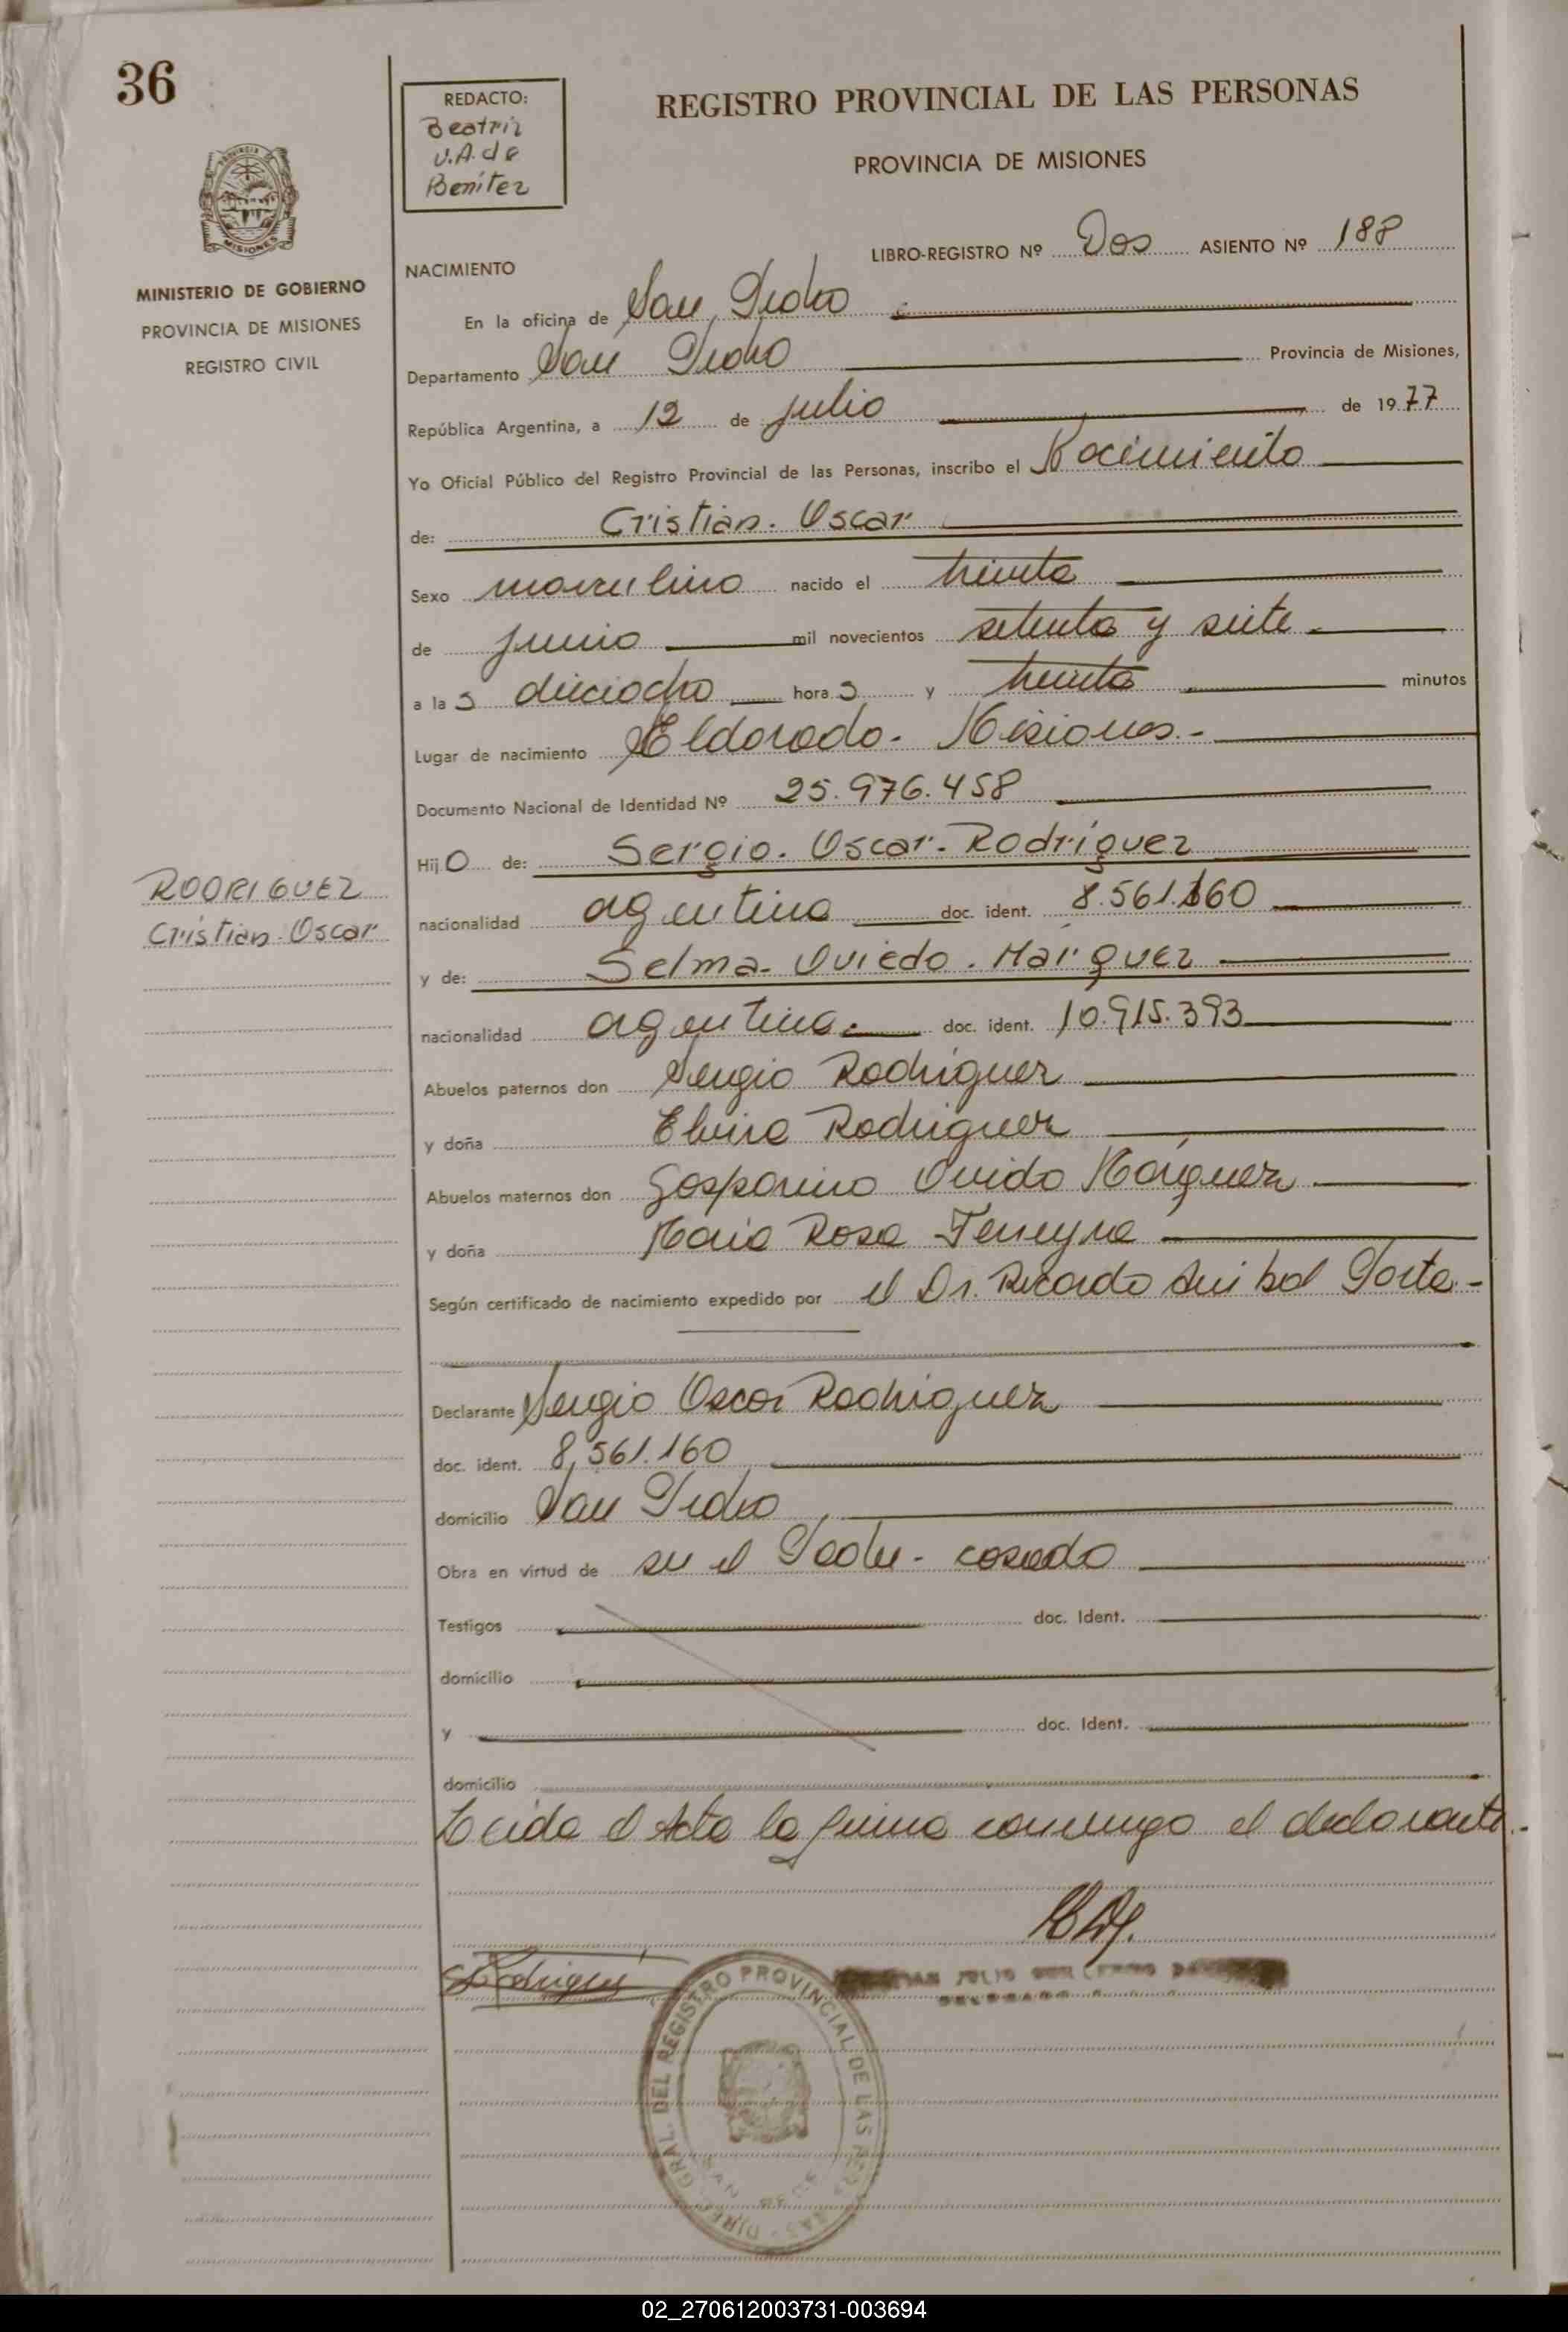 36
REDACTO:
Beatriz
V.A. de
Benítez
REGISTRO PROVINCIAL DE LAS PERSONAS
PROVINCIA DE MISIONES
MINISTERIO DE GOBIERNO
PROVINCIA DE MISIONES
REGISTRO CIVIL
LIBRO-REGISTRO Nº Dos ASIENTO Nº 188
NACIMIENTO
En la oficina de San Pedro
Departamento San Pedro Provincia de Misiones,
República Argentina, a 12 de julio de 1977
Yo Oficial Público del Registro Provincial de las Personas, inscribo el Nacimiento
de: Cristian. Oscar
Sexo masculino nacido el treinta
de junio mil novecientos setenta y siete
a las dieciocho horas y treinta minutos
Lugar de nacimiento Eldorado. Misiones.-
Documento Nacional de Identidad Nº 25.976.458
Hijo de: Sergio. Oscar. Rodríguez
RODRIGUEZ
Cristian Oscar
nacionalidad argentina doc. ident. 8.561.160
y de: Selma. Oviedo. Márquez
nacionalidad argentina. doc. ident. 10.915.393
Abuelos paternos don Sergio Rodríguez
y doña Elvira Rodríguez
Abuelos maternos don Gasparino Ovido Márquez
y doña María Rosa Ferreyra
Según certificado de nacimiento expedido por el Dr. Ricardo Anibal Porta.-
Declarante Sergio Oscar Rodriguez
doc. ident. 8,561.160
domicilio San Pedro
Obra en virtud de ser el Padre - casado
Testigos doc. Ident.
domicilio
y doc. Ident.
domicilio
Leida el Acta la firma conmigo el declarante.-
SRodriguez
DIREC. GRAL. DEL REGISTRO PROVINCIAL DE LAS
JULIO